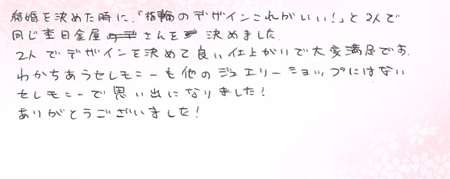 結婚を決めた時に、「指輪のデザインこれがいい!」と2人で
同じ杢目金屋さんを決めました。
2人でデザインを決めて良い仕上がりで大変満足です。
わかちあうセレモニーも他のジュエリーショップにはない
セレモニーで思い出になりました!
ありがとうございました!